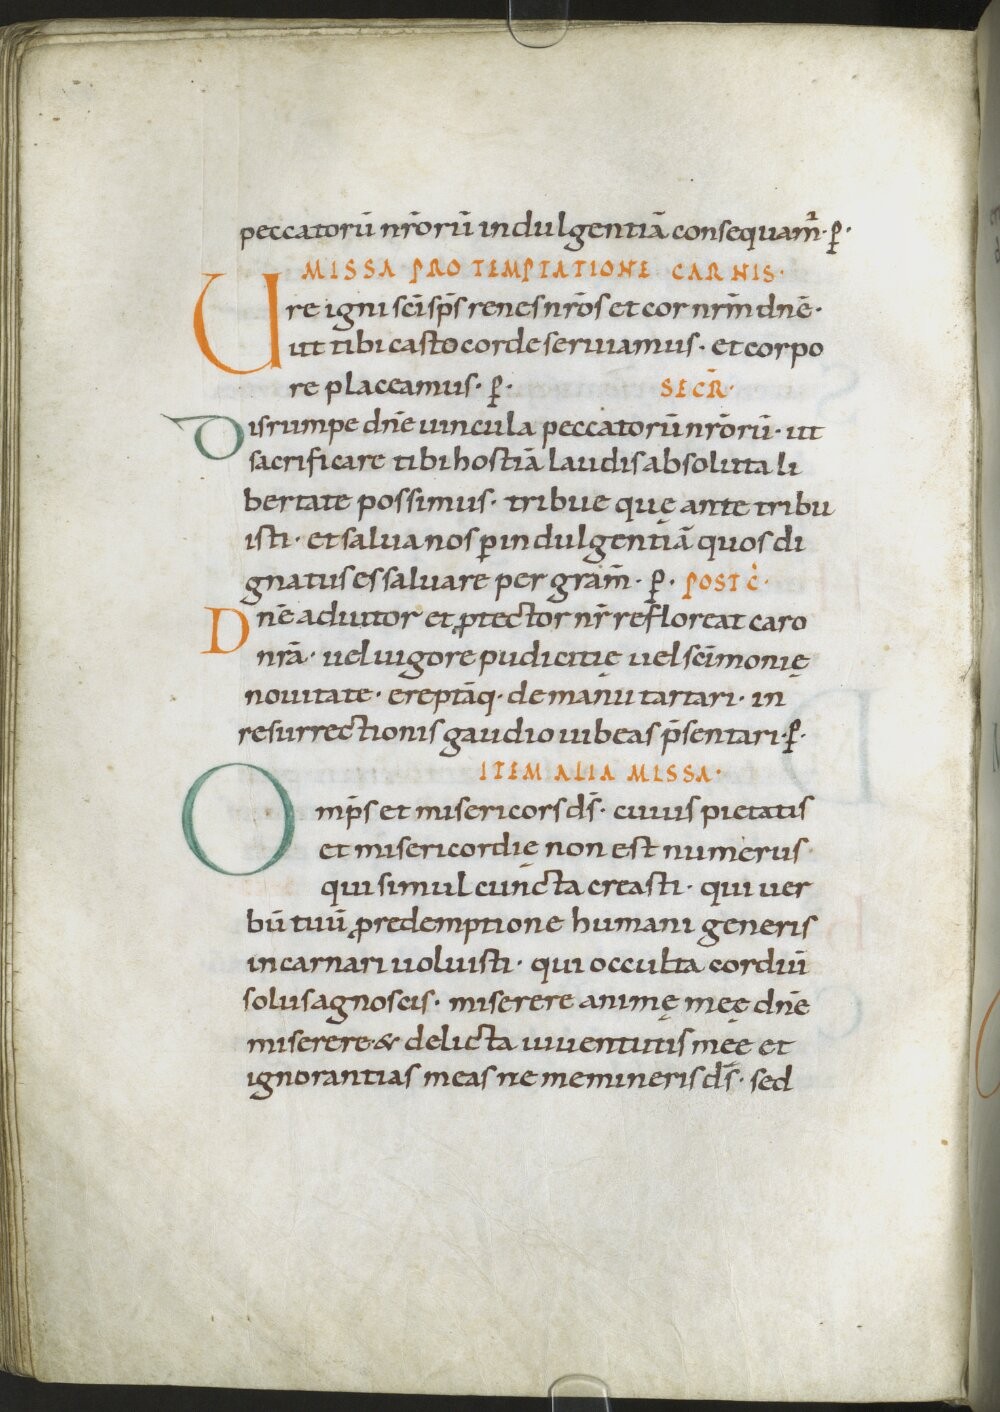 peccatorū nr̄orū indulgentiā consequam̄· p̲·
MISSA PRO TEMPTATIONE CARNIS·
Ure igni sc̄i sp̄s renes nr̄os et cor nrm̄ dn̄e·
ut tibi casto corde seruiamus· et corpo
re placeamus· p̲· SECR̄·
Disrumpe dn̄e uincula peccatorū nr̄orū· ut
sacrificare tibi hostiā laudis absoluta li
bertate possimus· tribue quę ante tribu
isti· et salua nos p̲ indulgentiā quos di
gnatus es saluare per gram̄· p̲· POST C̄·
Dn̄e adiutor et ꝓtector nr̄ refloreat caro
nr̄a· uel uigore pudicitię uel sc̄imonię
nouitate· ereptāq· de manu tartari· in
resurrectionis gaudio iubeas p̄sentari· p̲·
ITEM ALIA MISSA·
Omp̄s et misericors ds̄· cuius pietatis
et misericordię non est numerus·
qui simul cuncta creasti· qui uer
bū tuū ꝓ redemptione humani generis
incarnari uoluisti· qui occulta cordiū
solus agnoscis· miserere animę męę dn̄e
miserere· & delicta iuuentutis męę et
ignorantias meas ne memineris ds̄· sed